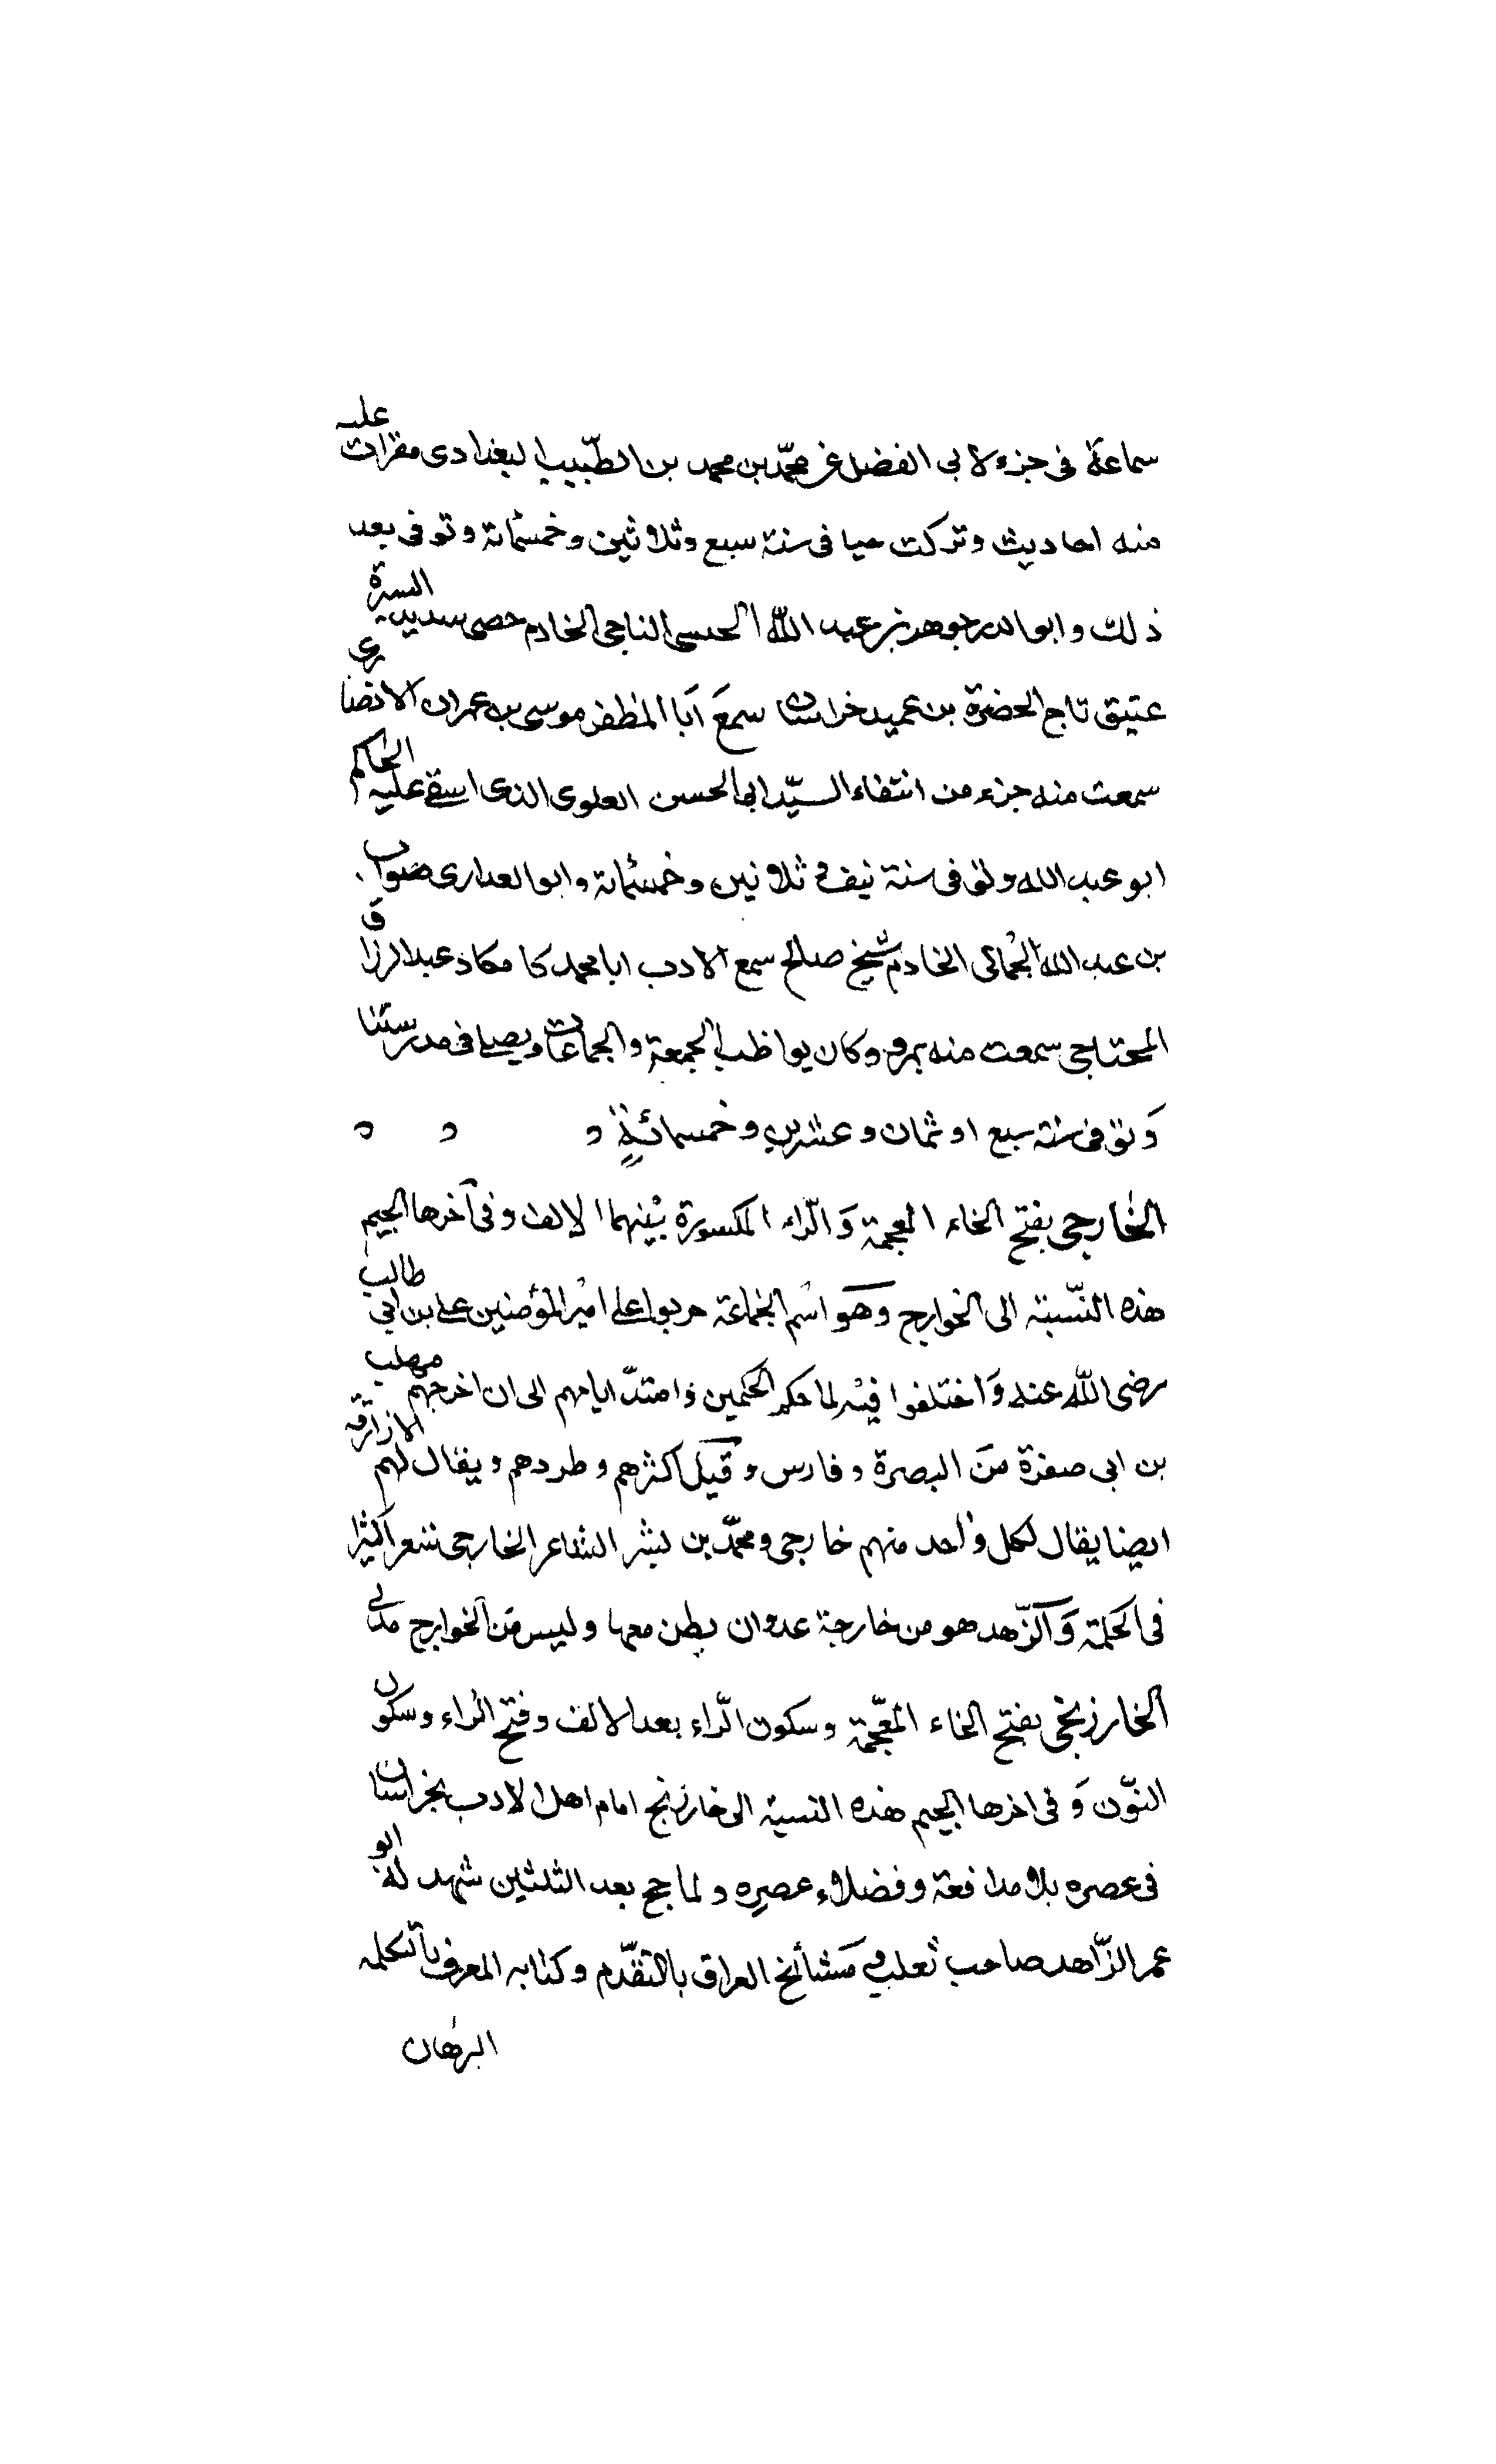 سماعة فى جزء لابى الفضل عن محمّد بن محمد بن الطّبيب البغدادى مقرات عليه
منه احاديث وتركت حيا فى سنة سبع وثلاثين وخمسمائة وتوفى بعد
ذلك وابوالدر جوهر بن عبد اللّٰه الحبسى الناجى الخادم خصى سديد السيرة
عتيق تاج الحضرة بن عميد خراسان سمعَ اَبا المظفر موسى بن عمران الانصارى
سمعت منه جزء من انتقاء السيّد ابى الحسن العلوى الذى انتقى عليه الحاكم
ابو عبد الله وتوفى سنة نيف و ثلاثين وخمسمائة وابو العدارى صواب
بن عبد اللّٰه الجمالى الخادم شّيخ صالح سمع الادب ابا محمد كا مكاد عبد الرزاق
المحتاجى سمعت منه بمرو وكان يواظب الجمعة والجماعات ويصلى فى مدرستنا
وَتوفى سنة سبع او ثمان وعشرين وخمسمائةٍ
الخارجى بفتح الخاء المعجمة وَ الرّاء المكسورة بيْنهما الالف وفى آخرها الجيم
هذه النّسبة الى الخوارج وَهو اسْم لجماعة حربوا على اميْر المؤمنين على بن ابى طالب
رضى اللّٰه عنه وَاختلفوا فيْه لما حكم الحكمين وامتدّ ايامهم الى ان اخرجهم مهلب
بن ابى صفرة منَ البصرة وفارس وقيل اكثرهم وطردهم ويقال لهم الازارقه
ايضا يقال لكل واحد منهم خارجى ومحمّد بن بشر الشاعر الخارجى شعر اكثيرا
فى الحكمة وَالزّهد هو من خارجة عدوان بطن معها وليس من الخوارج مدنى
الخارزنجى بفتح الخاء المعجّمة وسكون الرّاء بعد الالف وفتح الزاء وسكون
النوّن وَفى اخرها الجيم هذه النسبة الى خارزنج امام اهل الادب بخراسان
فى عصره بلا مدافعة وفضلاء عصره ولما حج بعد الثلثين شهد له ابو
عمر الزّاهد صاحب ثعلب و مَشائخ العراق بالتقدّم وكتابه المعرف بالتكلمه
البرهان